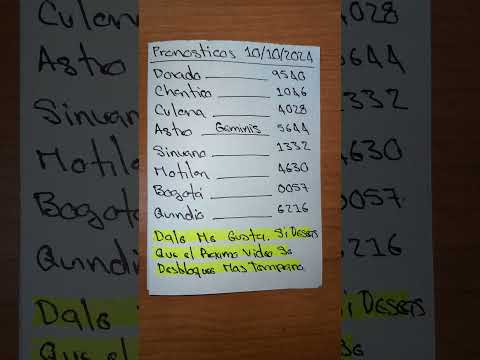 Pronosticos 10/10/2024
Dorado 9540
Chontico 1046
Culona 4028
Astro Geminis 5644
Sinuano 1332
Motilon 4630
Bogotá 0057
Quindio 6216
Dale Me Gusta. Si Deseas
Que el Proximo Video Se
Desbloquee Mas Temprano